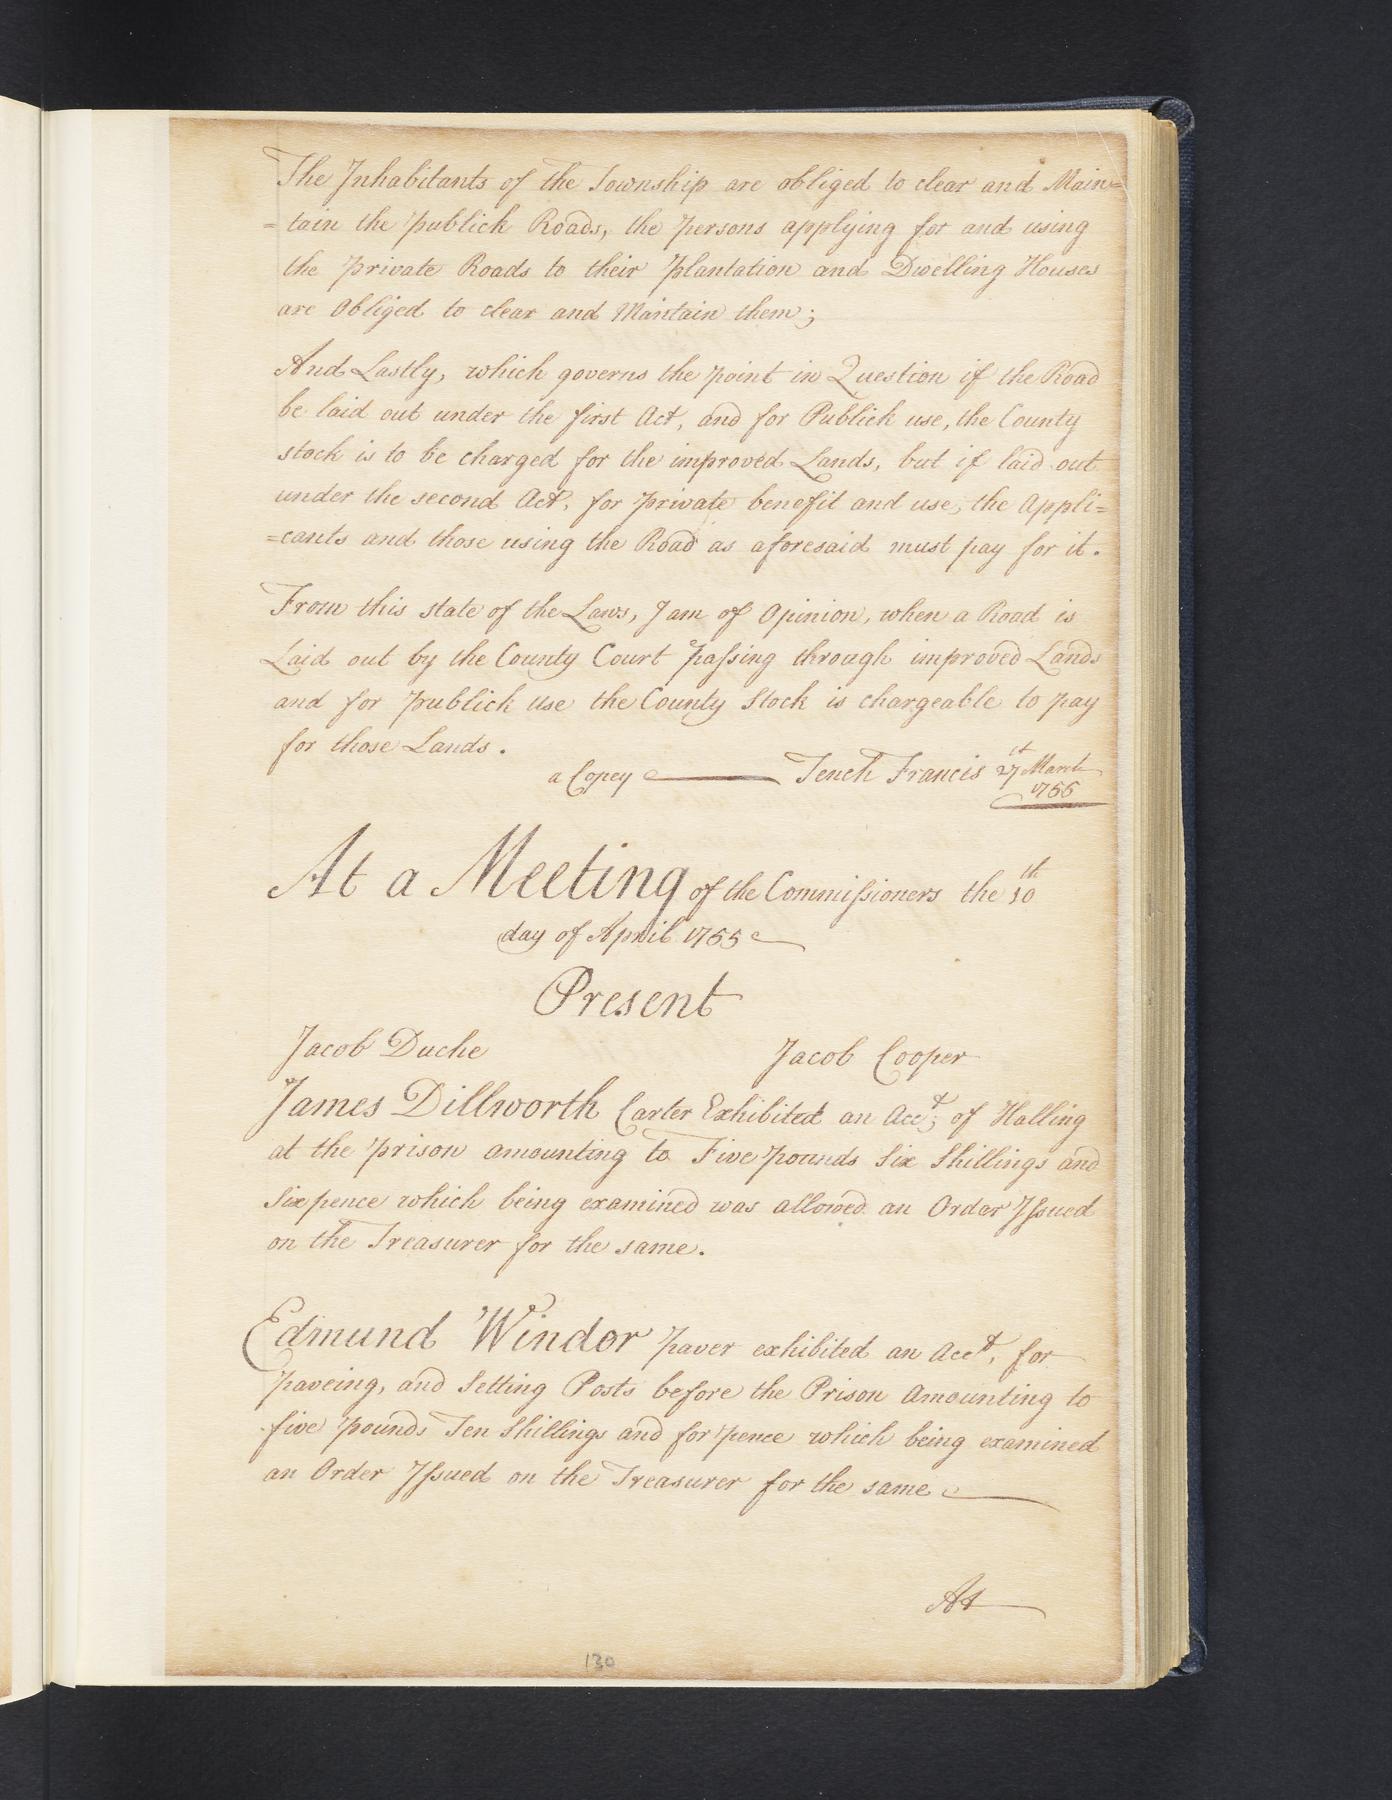 The Inhabitants of the Township are obliged to clear and Main=
=tain the publick Roads, the persons applying for and using
the private Roads to their plantation and Dwelling Houses
are Obliged to clear and Mantain them;
And Lastly, which governs the point in Question if the Road
be laid out under the first Act, and for Publick use, the County
stock is to be charged for the improved Lands, but if laid out
under the second Act, for private benefit and use, the Appli=
=cants and those using the Road as aforesaid must pay for it.
From this state of the Laws, I am of Opinion, when a Road is
Laid out by the County Court passing through improved Lands
and for publick use the County Stock is chargeable to pay
for those Lands.
a Copey Tench Francis 27st March
1755
At a Meeting of the Commissioners the 10th
day of April 1755
Present
Jacob Duche Jacob Cooper
James Dillworth Carter Exhibited an Acct; of Halling
at the prison amounting to Five pounds Six Shillings and
Sixpence which being examined was allowed an Ordar Issued
on the Treasurer for the same.
Edmund Windor paver exhibited an Acct, for
paveing, and Setting Posts before the Prison Amounting to
five pounds Ten Shillings and for pence which being examined
an Order Issued on the Treasurer for the same
At
130